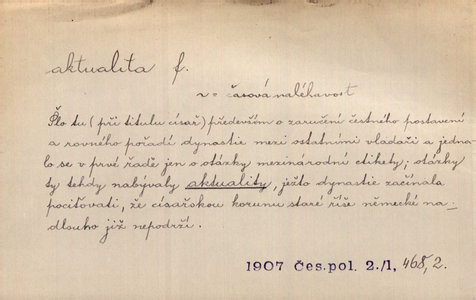 aktualita f.
časová naléhavost
Šlo tu (při titulu císař) především o zaručení čestného postavení
a rovného pořádí dynastie mezi ostatními vladaři a jedna-
lo se v prvé řadě jen o otázky mezinárodní etikety; otázky
ty tehdy nabývaly aktuality, ježto dynastie začínala
pociťovati, že císařskou korunu staré říše německé na-
dlouho již nepodrží.
1907 Čes. pol. 2./1, 468, 2.